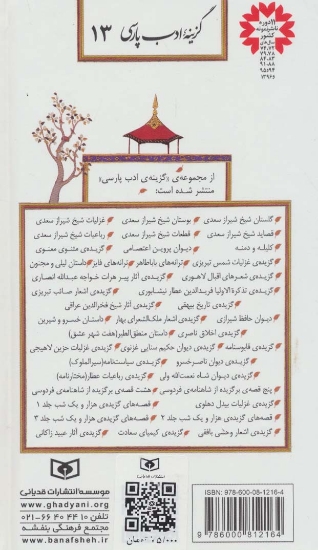 گزینهٔ ادب پارسی ۱۳
۱۱ دوره
ناشر نمونه
کشور
سال‌های
از مجموعه‌ی «گزینه‌ی ادب پارسی»
منتشر شده است:
گلستان شیخ شیراز سعدی بوستان شیخ شیراز سعدی غزلیات شیخ شیراز سعدی
قصاید شیخ شیراز سعدی قطعات شیخ شیراز سعدی رباعیات شیخ شیراز سعدی
کلیله و دمنه دیوان پروین اعتصامی گزیده‌ی مثنوی معنوی
گزیده‌ی غزلیات شمس تبریزی ترانه‌های باباطاهر ترانه‌های فایز داستان لیلی و مجنون
گزیده‌ی شعرهای اقبال لاهوری گزیده‌ی آثار پیر هرات خواجه عبدالله انصاری
گزیده‌ی تذکرة الاولیا فریدالدین عطار نیشابوری گزیده‌ی اشعار صائب تبریزی
گزیده‌ی تاریخ بیهقی گزیده‌ی آثار شیخ فخرالدین عراقی
دیوان حافظ شیرازی گزیده‌ی اشعار ملک‌الشعرای بهار داستان خسرو و شیرین
گزیده‌ی اخلاق ناصری داستان منطق‌الطیر (هفت شهر عشق)
گزیده‌ی قابوسنامه گزیده‌ی دیوان حکیم سنایی غزنوی گزیده‌ی غزلیات حزین لاهیجی
گزیده‌ی دیوان ناصرخسرو گزیده‌ی سیاست‌نامه (سیرالملوک)
گزیده‌ی دیوان شاه نعمت‌الله ولی گزیده‌ی رباعیات عطار (مختارنامه)
پنج قصه‌ی برگزیده از شاهنامه‌ی فردوسی هشت قصه‌ی برگزیده از شاهنامه‌ی فردوسی
گزیده‌ی غزلیات بیدل دهلوی قصه‌های گزیده‌ی هزار و یک شب جلد ۱
قصه‌های گزیده‌ی هزار و یک شب جلد ۲ قصه‌های گزیده‌ی هزار و یک شب جلد ۳
گزیده‌ی اشعار وحشی بافقی گزیده‌ی کیمیای سعادت گزیده‌ی آثار عبید زاکانی
موسسه انتشارات قدیانی
www.ghadyani.org
تلفن ۱۰ ۴۴ ۴۰ ۶۶-۰۲۱
مجتمع فرهنگی بنفشه
www.banafsheh.ir
ISBN: 978-600-08-1216-4
9 786000 812164